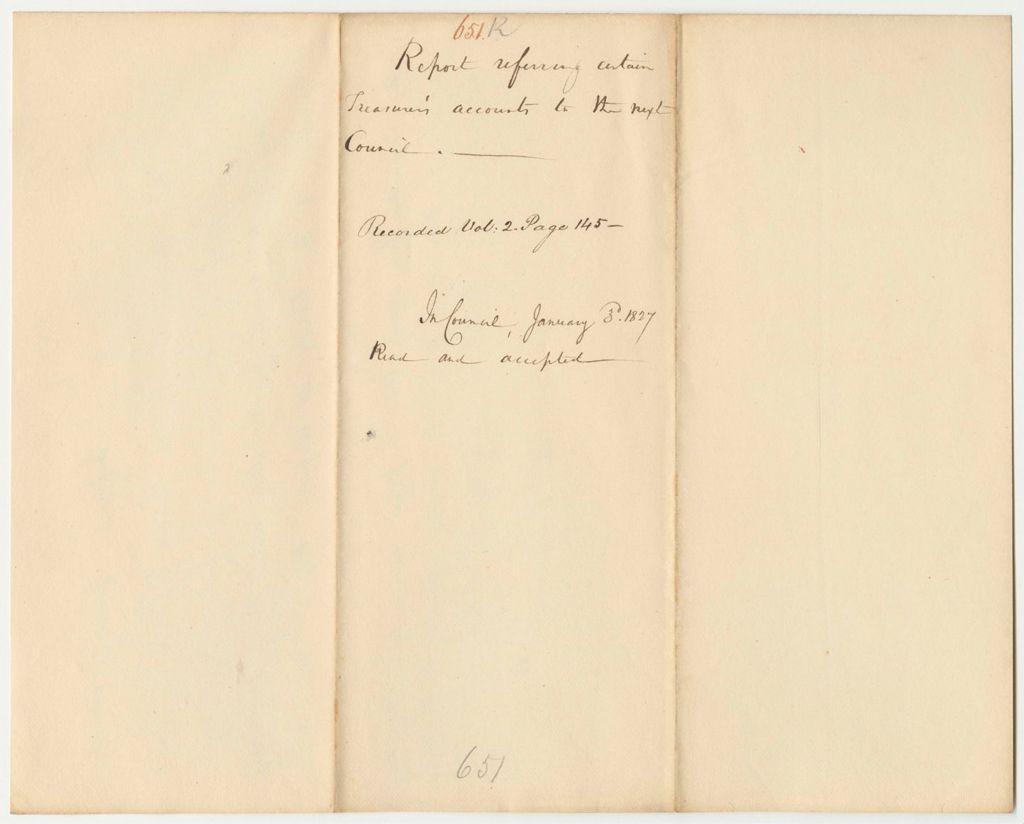 651. K
Report referring certain
Treasurer's accounts to the next
Council.
Recorded Vol: 2. Page 145-
In Council, January 3d. 1827
Read and accepted
651